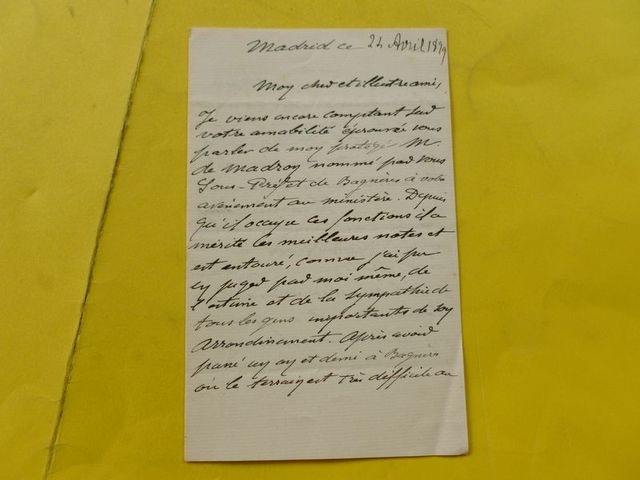 Madrid ce 24 Avril 1879
Moy cher et illustre ami,
Je viens encore comptant sur
votre amabilité éprouvée vous
parler de moy protégé M.
de Madroy nommé par vous
Sous-Préfet de Bagnères à votre
avènement au ministère. Depuis
qu'il occupe ces fonctions il a
mérité les meilleures notes et
est entouré, comme j'ai pu
ey juger par moi même, de
l'estime et de la sympathie de
tous les gens importants de soy
arrondissement. Après avoir
passé uy ay et demi à Bagnères
où le terraiy est très difficile au